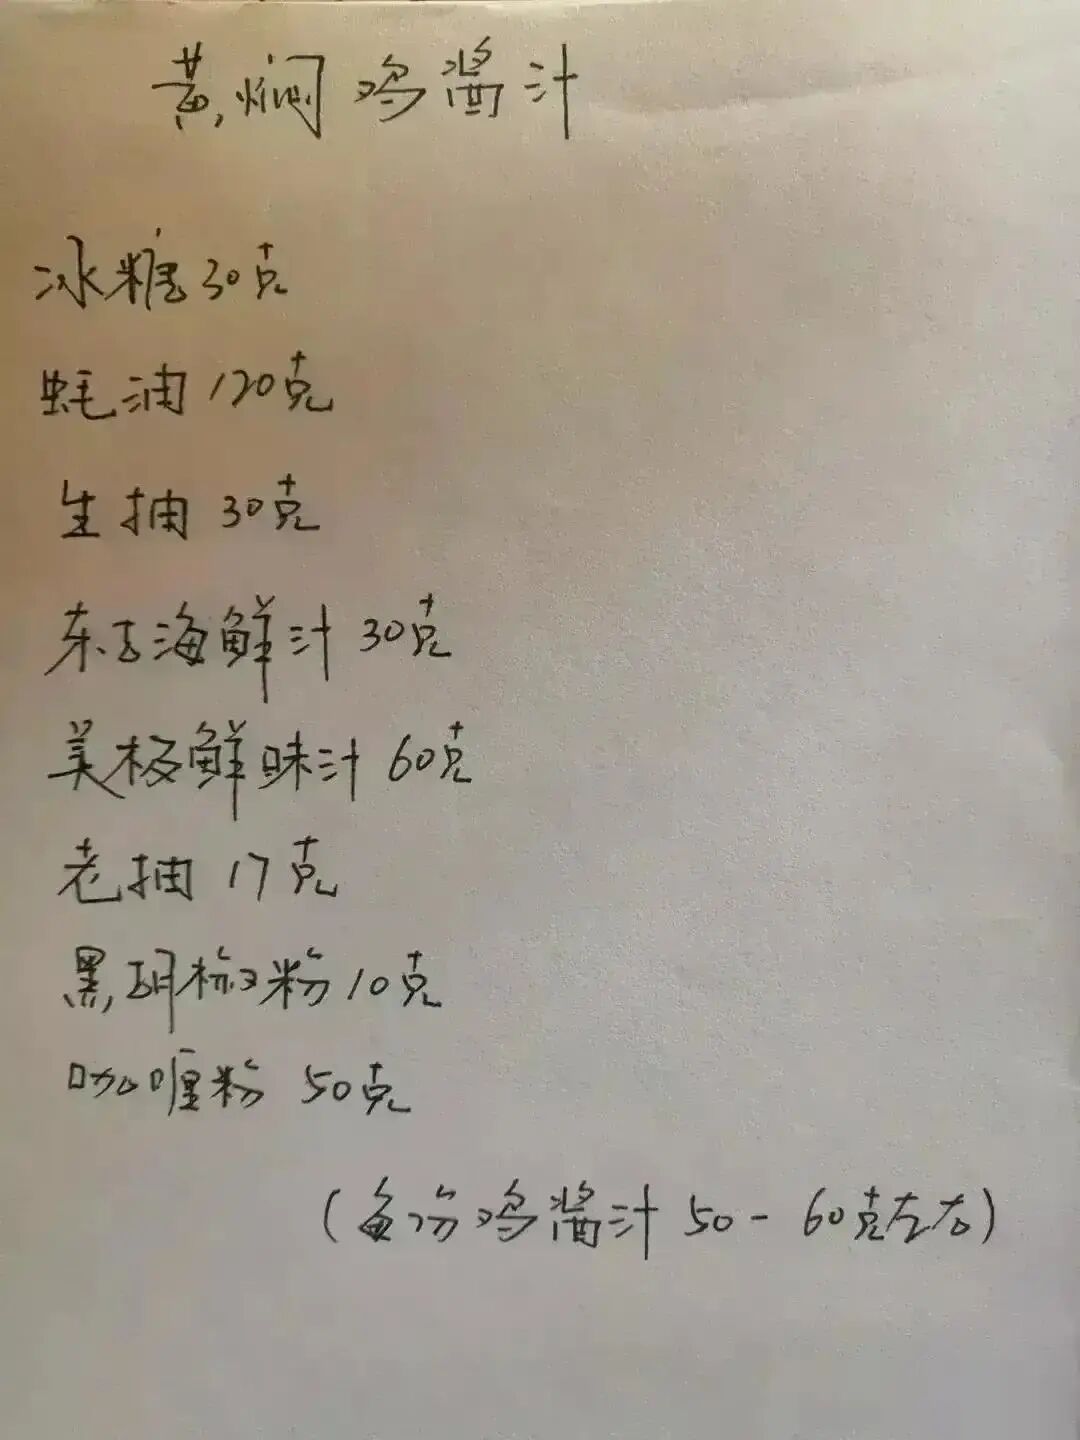 黄焖鸡酱汁
冰糖30克
蚝油120克
生抽30克
东古海鲜汁30克
美极鲜味汁60克
老抽17克
黑胡椒粉10克
咖喱粉50克
(每份鸡酱汁50-60克左右)